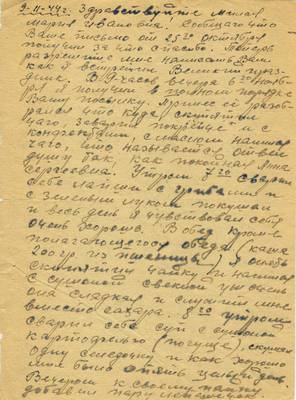 9-11-44г. Здравствуйте милая
Мария Ивановна. Сообщаю что
Ваше письмо от 25го октября
получил за что спасибо. Теперь
разрешите мне написать Вам
как я встретил Великий празд-
дник. В 9 часов вечера 6го нояб-
ря я получил в полном порядке
Вашу посылку. Принес её
чай, заварил покрепче и с
конфектами с маслом напился
чаю, что называется отвёл
душу так, как покойная Анна
Сергеевна. Утром 7го сварил
себе лапши с грибами и
с зелёным луком покушал
и весь день я чувствовал себя
очень хорошо. В обед кроме
полагающегося обеда (каша
200 гр. из пшеницы) я опять
скипятил чайку и напился
с сушёной свеклой уж очень
она сладкая и служит мне
вместо сахара. 8го утром
сварил себе суп с сушёной
картофелью (погуще), скушал
одну селёдочку и как хорошо
мне было опять целый день.
Вечером к своему пайку
добавил пару лепёшек.